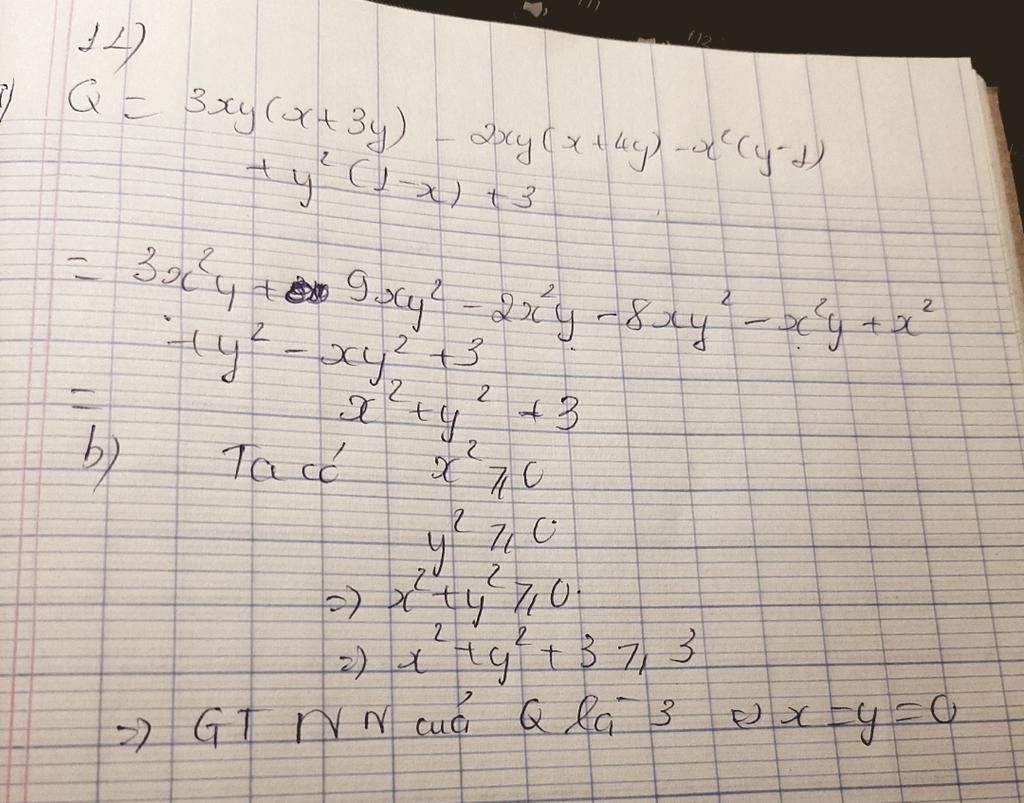 11)
a) Q = 3xy(x+3y) - 2xy(x+4y) - x²(y-1)
+ y²(1-x) + 3
= 3x²y + 9xy² - 2x²y - 8xy² - x²y + x²
+ y² - xy² + 3
= x² + y² + 3
b) Ta có x² ≥ 0
y² ≥ 0
=> x² + y² ≥ 0
=> x² + y² + 3 ≥ 3
=> GTNN của Q là 3 <=> x = y = 0